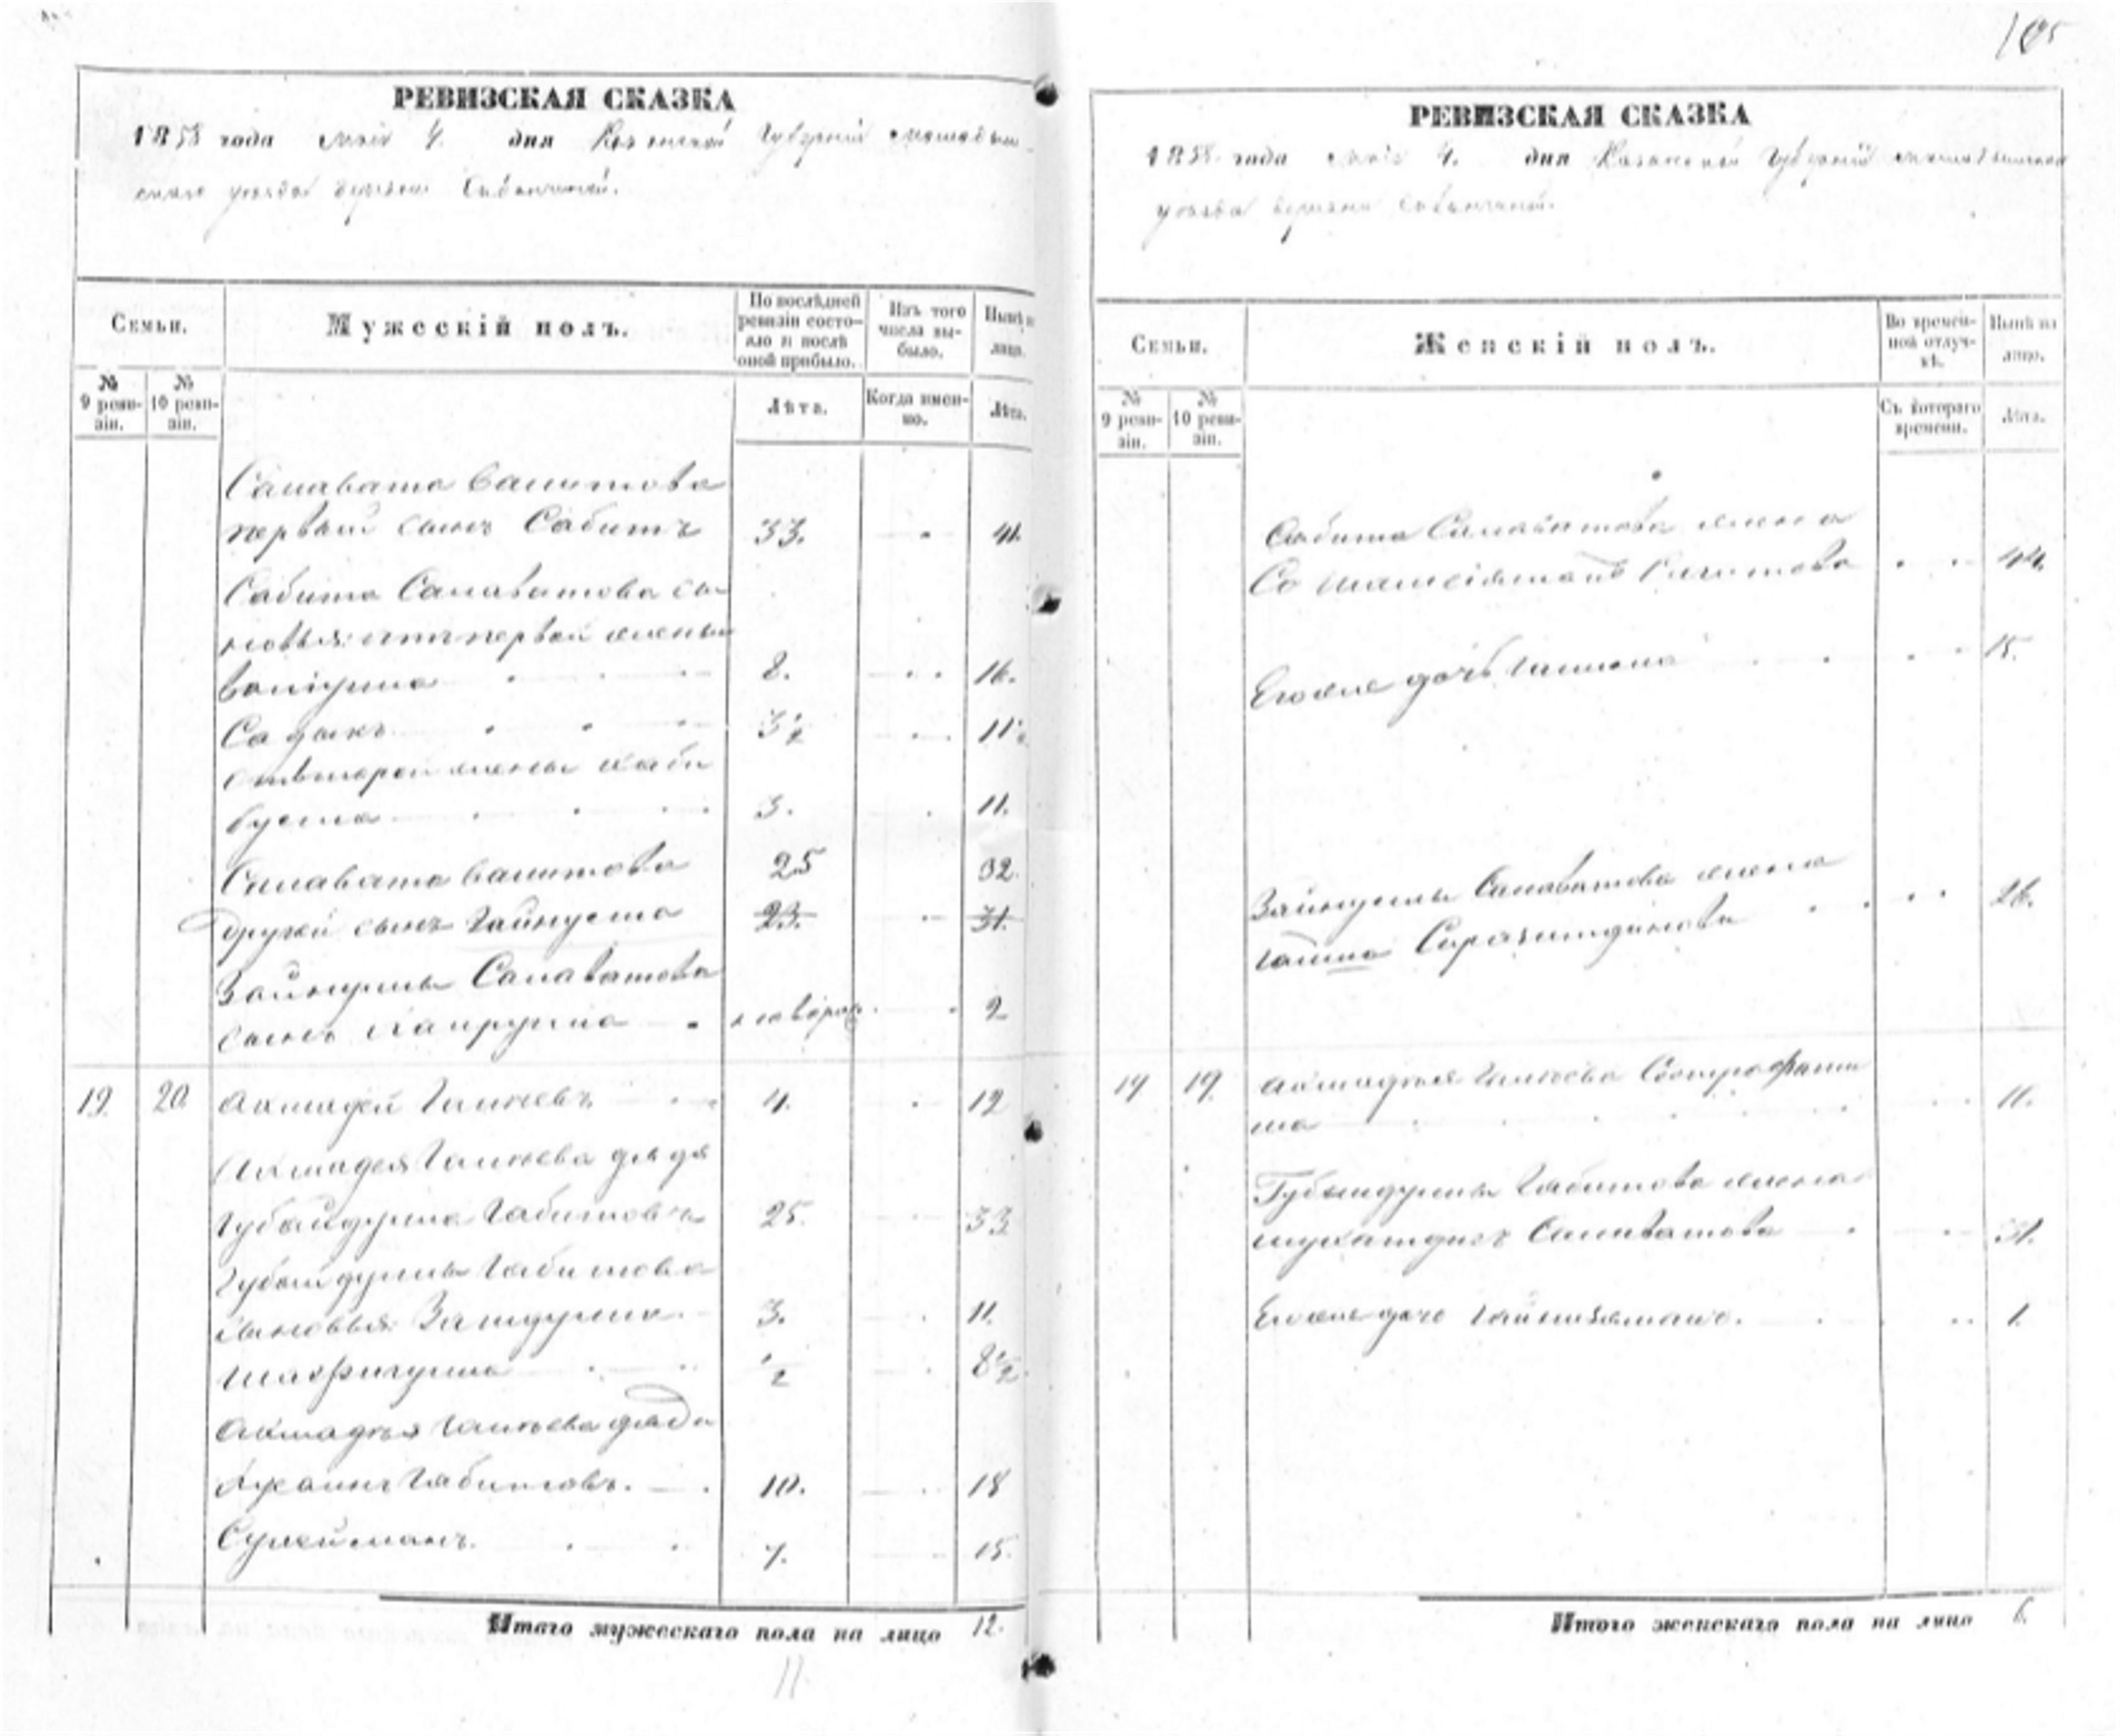 105
РЕВИЗСКАЯ СКАЗКА
1858 года Маія 4. дня Казанской Губерніи Мамадыш-
скаго уезда деревни
Семьи.
Мужескій полъ.
По послѣдней ревизіи состояло и послѣ оной прибыло.
Изъ того числа выбыло.
Нынѣ на лицо.
№ 9 ревизіи.
№ 10 ревизіи.
Лѣта.
Когда именно.
Лѣта.
Салавата Валитова
первый сынъ Сабитъ 33. 41.
Сабита Салаватова сы-
новья: отъ первой жены
Валіулла 8. 16.
Садыкъ 3½ 11½
отъ второй жены Хаби
булла 3. 11.
Салавата Валитова 25 32.
другой сынъ Зайнулла 23. 31.
Зайнуллы Салаватова
сынъ Хайрулла новорож. 2
19. 20. Ахмадей Галѣевъ 4. 12
Ахмадея Галѣева дядя
Губайдулла Габитовъ 25. 33
Губайдуллы Габитова
сыновья: 3. 11.
Шафигулла ½ 8½
Ахмадѣя Галѣева дядя
Габитовъ. 10. 18
Сулейманъ. 7. 15.
Итого мужескаго пола на лицо 12.
11
РЕВИЗСКАЯ СКАЗКА
1858 года Маія 4. дня Казанской Губерніи Мамадышскаго
уезда деревни
Семьи.
Женскій полъ.
Во временной отлучкѣ.
Нынѣ на лицо.
№ 9 ревизіи.
№ 10 ревизіи.
Съ котораго времени.
Лѣта.
Сабита Салаватова жена
44.
Его же дочь 15.
Зайнуллы Салаватова жена
Сиразитдинова 26.
19 19. Ахмадѣя Галѣева Сестра
11.
Губайдуллы Габитова жена
Салаватова 31.
Его же дочь 1.
Итого женскаго пола на лицо 6.